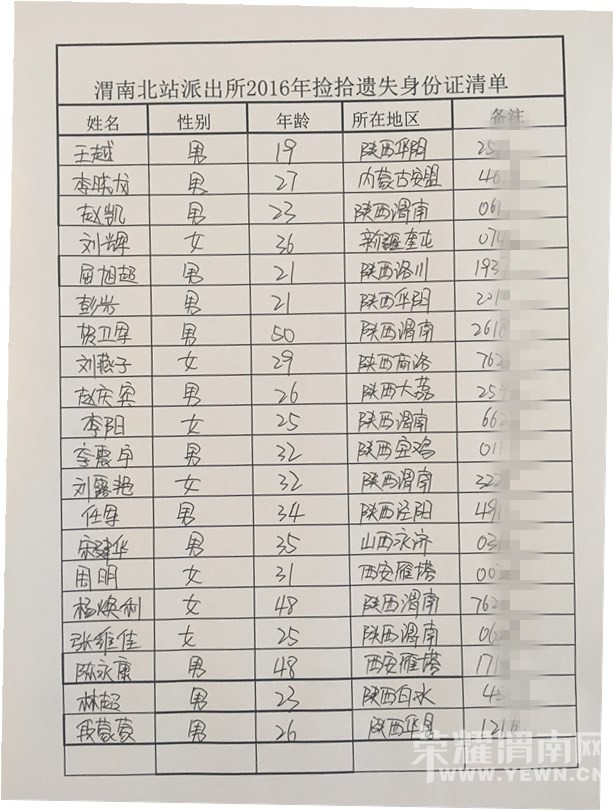 渭南北站派出所2016年捡拾遗失身份证清单
姓名 性别 年龄 所在地区 备注
王越 男 19 陕西华阴 25
李晓龙 男 27 内蒙古安盟 46
赵凯 男 23 陕西渭南 061
刘辉 女 36 新疆奎屯 074
屈旭超 男 21 陕西洛川 1937
彭 男 21 陕西华阴 201
杨卫军 男 50 陕西渭南 2618
刘燕子 女 29 陕西商洛 762
赵庆安 男 26 陕西大荔 259
李阳 女 25 陕西渭南 662
李震宇 男 32 陕西宝鸡 011
刘露艳 女 32 陕西渭南 322
任军 男 34 陕西泾阳 491
宋建华 男 35 山西永济 03
周明 女 31 西安雁塔 00
杨焕利 女 48 陕西渭南 762
张维佳 女 25 陕西渭南 06
陈永康 男 48 西安雁塔 171
林超 男 23 陕西白水 4
蒙蒙 男 26 陕西华县 121
荣耀渭南网
WWW.YEWN.CN